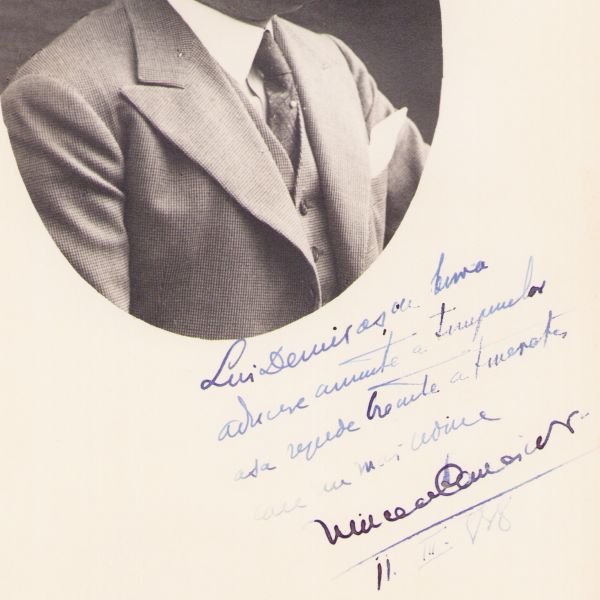 Lui Demiraș, cu buna
aducere aminte a timpurilor
așa repede trecute a tinereței
care nu mai revine
Mircea
11. III.